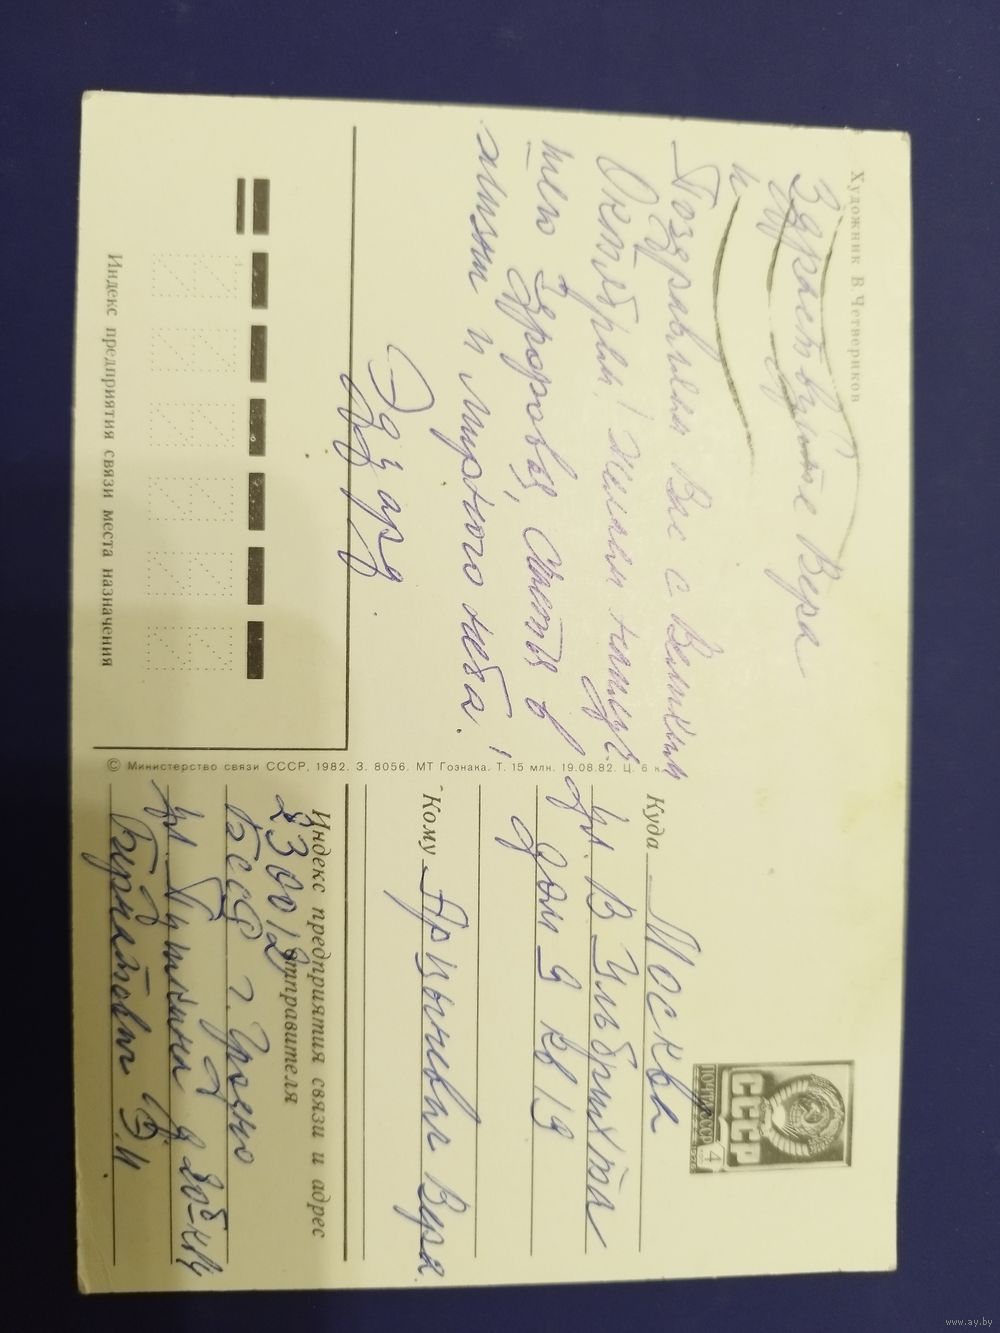 Художник В. Четвериков
Здравствуйте Вера
и
Поздравляем Вас с Великим
Октябрем! Желаем
Здоровья, Счастья в
жизни и мирного неба!
Эдуард
Индекс предприятия связи места назначения
© Министерство связи СССР, 1982. З. 8056. МТ Гознака. Т. 15 млн. 19.08.82. Ц. 6 к.
ПОЧТА СССР
СССР
4
Куда Москва
ул. В Ульбрихта
дом 9 кв 19
Кому Вера
Индекс предприятия связи и адрес
отправителя
230012
БССР г. Гродно
ул Пушкина д 20
Э.И
www.ay.by